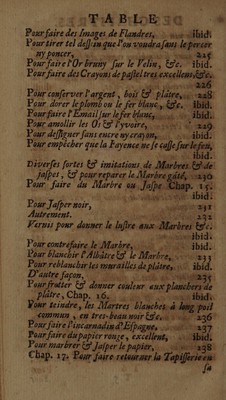 TABLE
Pour faire des Images de Flandres, ibid.
Pour tirer tel dessein que l'on voudra sans le percer
ny poncer, 225
Pour faire l'Or bruny sur le Velin, &c. ibid.
Pour faire des Crayons de pastel tres excellens, &c.
226
Pour conserver l'argent, bois & plâtre, 228
Pour dorer le plomb ou le fer blanc, &c. ibid.
Pour faire l'Email sur le fer blanc, ibid.
Pour amollir les Os & l'yvoire, 229
Pour dessigner sans encre ny crayon, ibid.
Pour empêcher que la Fayence ne se casse sur le feu,
ibid.
Diverses sortes & imitations de Marbres & de
jaspes, & pour reparer le Marbre gâté, 230
Pour faire du Marbre ou Jaspe Chap. 15.
ibid.
Pour Jasper noir, 231
Autrement. 232
Vernis pour donner le lustre aux Marbres &c.
ibid.
Pour contrefaire le Marbre, ibid.
Pour blanchir l'Albâtre & le Marbre, 233
Pour reblanchir les murailles de plâtre, ibid.
D'autre façon, 235
Pour frotter & donner couleur aux planchers de
plâtre, Chap. 16. ibid.
Pour teindre, les Martres blanches à long poil
commun, en tres-beau noir &c. 236
Pour faire l'incarnadin d'Espagne, 237
Pour faire du papier rouge, excellent, ibid.
Pour marbrer & Jasper le papier, 238
Chap. 17. Pour faire retourner la Tapisserie en
sa